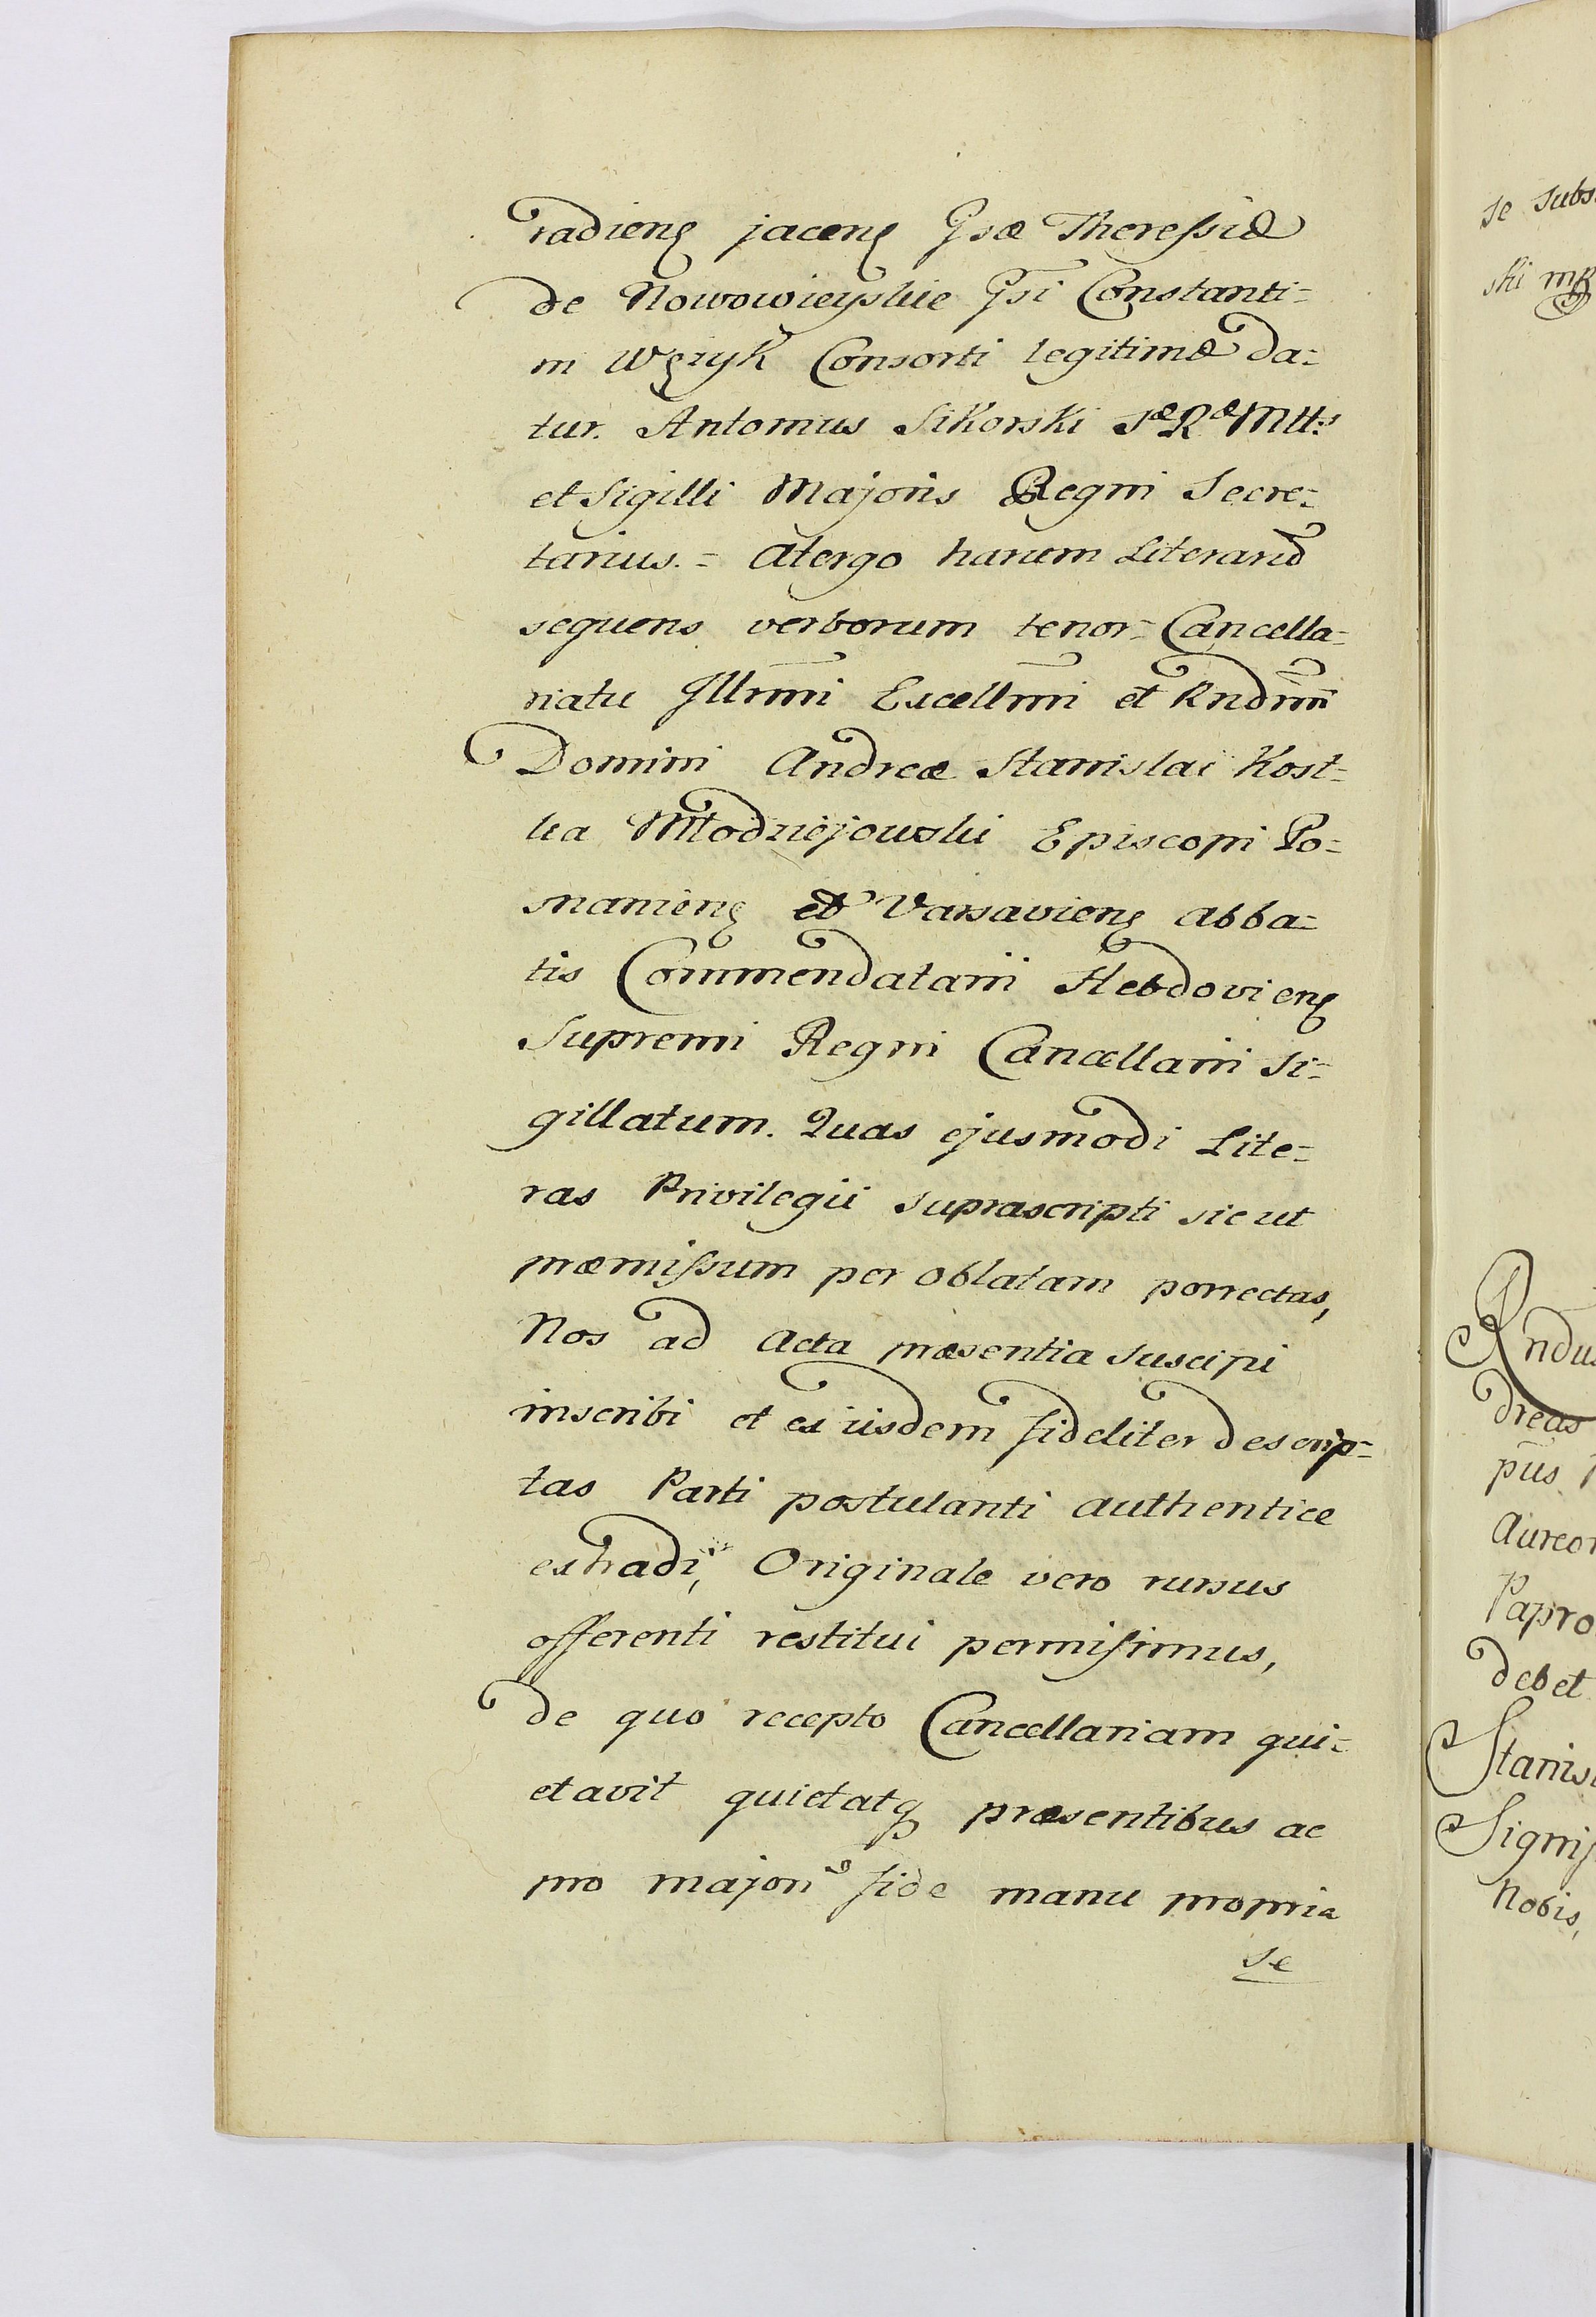 radienş jacenş Gsæ Theressiæ
de Nowowieyskie Gsi Constanti=
ni Węzyk Consorti legitimæ da=
tur. Antonius Sikorski Sæ Ræ Mtts
et Sigilli Majoris Regni Secre=
tarius.= Atergo harum Literarū
sequens verborum tenor= Cancella=
riatu Illmi Excellmi et Rndmi
Domini Andreæ Stanislai Kost=
ka Młodziejowski Episcopi Po=
snaniens et Varsaviens Abba=
tis Commendatarii Hebdoviens
Supremi Regni Cancellarii Si=
gillatum. Quas ejusmodi Lite=
ras Privilegii suprascripti sicut
præmissum per Oblatam porrectas,
Nos ad Acta præsentia suscipi
inscribi et ex iisdem fideliter descrip=
tas Parti postulanti authentice
extradi, Originale vero rursus
offerenti restitui permisimus,
de quo recepto Cancellariam qui=
etavit quietatq præsentibus ac
pro majori fide manu propria
se
se subs
ski mp
Rndus
dreas
pus
Aureor
Papro
debet
Stanisl
Signif
Nobis,